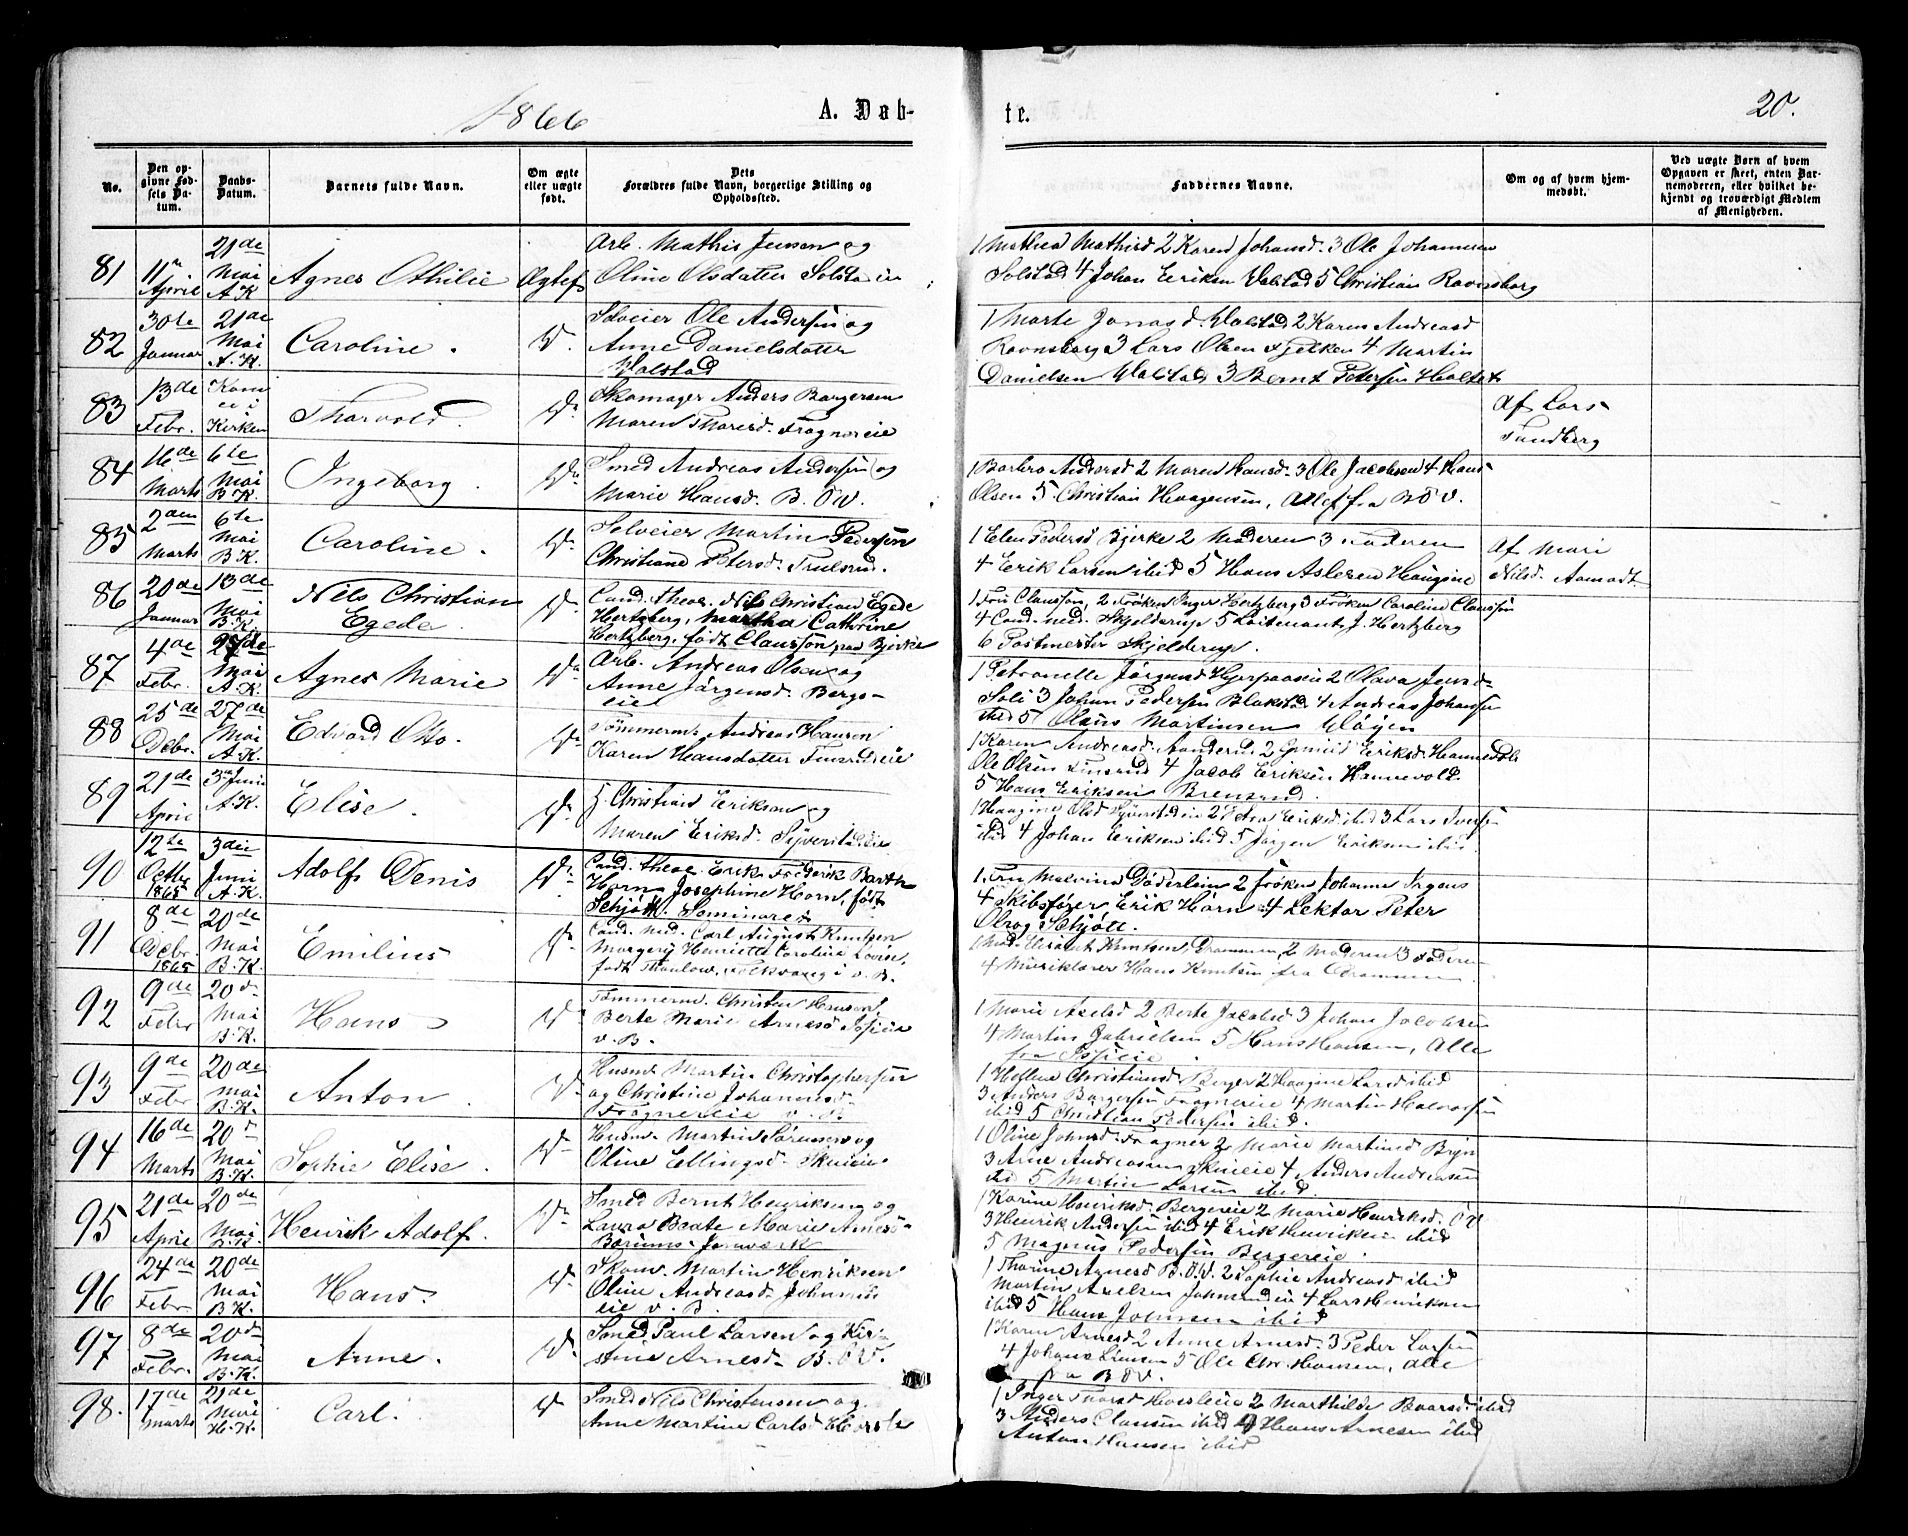 1866
A. Døb-
te.
20.
No.
Den op-
givne Fød-
sels Da-
tum.
Daabs-
Datum.
Barnets fulde Navn.
Om ægte
eller uægte
født.
Dets
Forældres fulde Navn, borgerlige Stilling og
Opholdssted.
Faddernes Navne.
Om og af hvem hjem-
medøbt.
Ved uægte Børn af hvem
Opgaven er skeet, enten Bar-
nemoderen, eller hvilket be-
kjendt og troværdigt Medlem
af Menigheden.
81
11te April
21de Mai A.K
Agnes Othilie
Ægtef
Arb. Mathis Jensen og
Oline Olsdatter Solstadeie
1 Mathea Mathisd 2 Karen Johansd. 3 Ole Johannesen
Solstad 4 Johan Eriksen Valstad 5 Christian Ravnsborg
82
30te Januar
21de Mai A.K.
Caroline.
Do.
Selveier Ole Andersen og
Anne Danielsdatter
Valstad
1 Marte Jonasd. Valstad 2 Karen Andreasd
Ravnsborg 3 Lars Olsen Fjelken 4 Martin
Danielsen Valstad 3 Bernt Petersen Holtet
83
13de Febr.
Kom ei i Kirken
Tharvald.
Do
Skomager Anders Borgersen
Maren Thorisd. Fragnereie
af Lars
Sundberg
84
16de Marts
6te Mai B.K.
Ingeborg.
Do
Smed Andreas Andersen og
Marie Hansd. B. ØV.
1 Barbro Andersd 2 Maren Hansd. 3 Ole Jacobsen 4 Hans
Olsen 5 Christian Haagensen, Alle fra B Ø V.
85
2den Marts
6te Mai B.K.
Caroline.
Do
Selveier Martin Pedersen
Christiane Petersd. Trulsrud.
1 Elen Pedersd Bjerke 2 Moderen 3 Faderen
4 Erik Larsen ibid 5 Hans Aslesen Haugine
af Mari
Nilsd. Aamodt
86
20de Januar
13de Mai B.K.
Nils Christian
Egede.
Do
Cand. theol. Nils Christian Egede
Hertzberg, Martha Cathrine
Hertzberg, født Claussøn, paa Bjerke
1 Frk Claussøn, 2 Frøken Inger Hertzberg 3 Frøken Caroline Claussøn
4 Cand. med. Skjelderup 5 Løitenant J. Hertzberg
6 Postmester Skjelderup.
87
4de Febr.
27de Mai A.K.
Agnes Marie
Do
Arb. Andreas Olsen og
Anne Jørgensd. Bergs-
eie
1 Petronelle Jørgensd Hjerpaasen 2 Olava Jensd.
Soli 3 Johan Pedersen Blakstad 4 Andreas Johansen
ibid 5 Olaus Martinsen Vøyen
88
25de Debr.
27de Mai A.K.
Edvard Otto.
Do
Tømmerm. Andreas Hansen
Karen Hansdatter Finsrudeie
1 Karen Andreasd. Sanderud. 2 Gunild Eriksd. Hannevold
Ole Olsen Finsrud 4 Jacob Eriksen Hannevold.
5 Hans Eriksen Brensrud.
89
21de April
3die Juni A.K.
Elise.
Do
G. Christian Erikson og
Maren Eriksd. Syverstadeie
1 Haagine Olsd Syverstadeie 2 Petra Eriksd ibid 3 Lars Iversen
ibid 4 Johan Eriksen ibid 5 Jørgen Eriksen ibid.
90
12te Octbr 1865
3die Juni A.K.
Adolf Denis
Do.
Cand. theol. Erik Frederik Barth
Horn Josephine Horn, født
Schjøtt. Seminariet
1. Fru Malvina Döderlein 2 Frøken Johanne Irgens
4 Skibsfører Erik Horn 4 Lektor Peter
Olrog Schjøtt.
91
8de Debr. 1865
20de Mai B.K.
Emilius
Do
Cand. med. Carl August Knutzen
Margery Henriette Caroline Lovise,
født Thaulow, Folkvang i v. B.
Knutsen, Drammen, 2 Moderen 3 Faderen
4 Musiklærer Hans Knutsen fra Drammen
92
9de Febr
20de Mai B.K.
Hans
Do
Tømmerm. Christen Hansen,
Berte Marie Arnesd
v. B.
1 Marie Axelsd 2 Berte Jacobsd 3 Johan Jacobsen
4 Martin Gabrielsen 5 Hans Hansen, Alle
93
9de Febr
20de Mai B.K.
Anton.
Do
Husm Martin Christophersen
og Christine Johannesd.
Fragnereie v. B
1 Hellene Christiansd. Berger 2 Haagine Larsd ibid
3 Anders Borgersen Fragnereie 4 Martin Halvorsen
ibid 5 Christian Pedersen ibid.
94
16de Marts
20de Mai B.K.
Sophie Elise.
Do
Husm. Martin Sørensen og
Oline Ellingsd. Skuieie
1 Oline Johnsd. Fragner 2 Marie Martinsd Bryn
3 Arne Andreasen Skuieie 4 Anders Andreasen
ibid 5 Martin Larsen ibid.
95
21de April
20de Mai B.K
Henrik Adolf.
Do
Smed Bernt Henriksen og
Laura Beate Marie Arnesd.
Bærums Jernværk
1 Karine Henriksd. Bergereie 2 Marie Henriksd. ØV
3 Henrik Andersen ibid 4 Erik Henriksen ibid
5 Magnus Pedersen Bergereie.
96
24de Febr
20de Mai B.K.
Hans.
Do
Skom. Martin Henriksen
Oline Andreasd. Johnsrud
eie v. B.
1 Tharine Arnesd B.ØV. 2 Sophie Andreasd ibid
Martin Axelsen Johnsrudeie 4 Lars Henriksen
ibid 5 Hans Johnsen ibid
97
8de Febr.
20de Mai B.K.
Anne.
Do.
Smed Paul Larsen og Kir-
stine Arnesd. B. ØV.
1 Karen Arnesd 2 Anne Arnesd. 3 Peder Larsen
4 Johans Linesen 5 Ole Chr. Hansen, alle
fra B Ø V.
98.
17de Marts
21de Mai H.K.
Carl.
Do
Smed Nils Christensen og
Anne Martine Carlsd Horsle
1 Inger Thorsd Horsleie 2 Marthilde Baarsd ibid
3 Anders Clausen ibid 4 Hans Arnesen ibid
Anton Hansen ibid